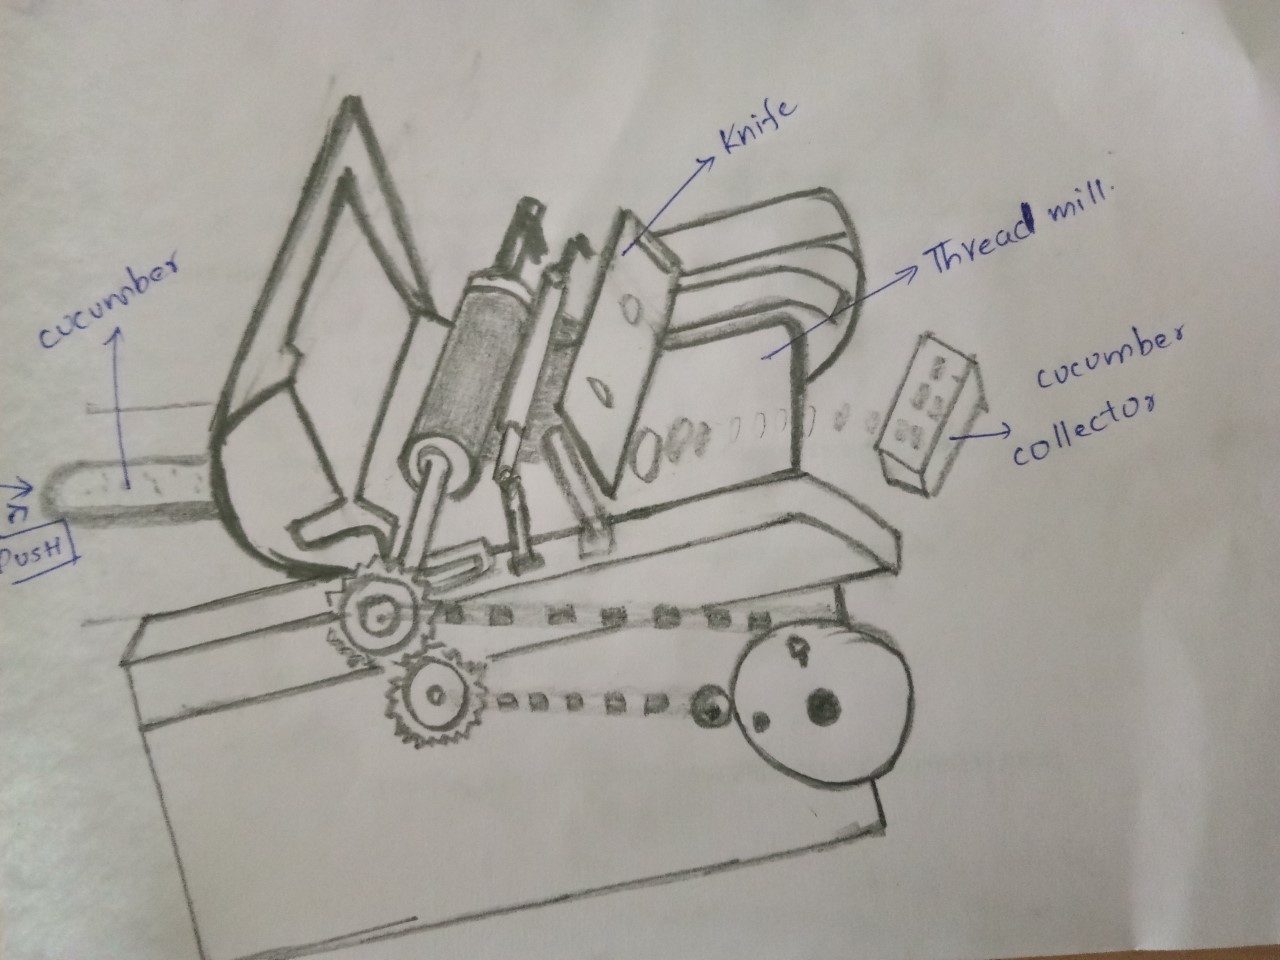 Knife
Thread mill.
cucumber
cucumber
collector
PUSH